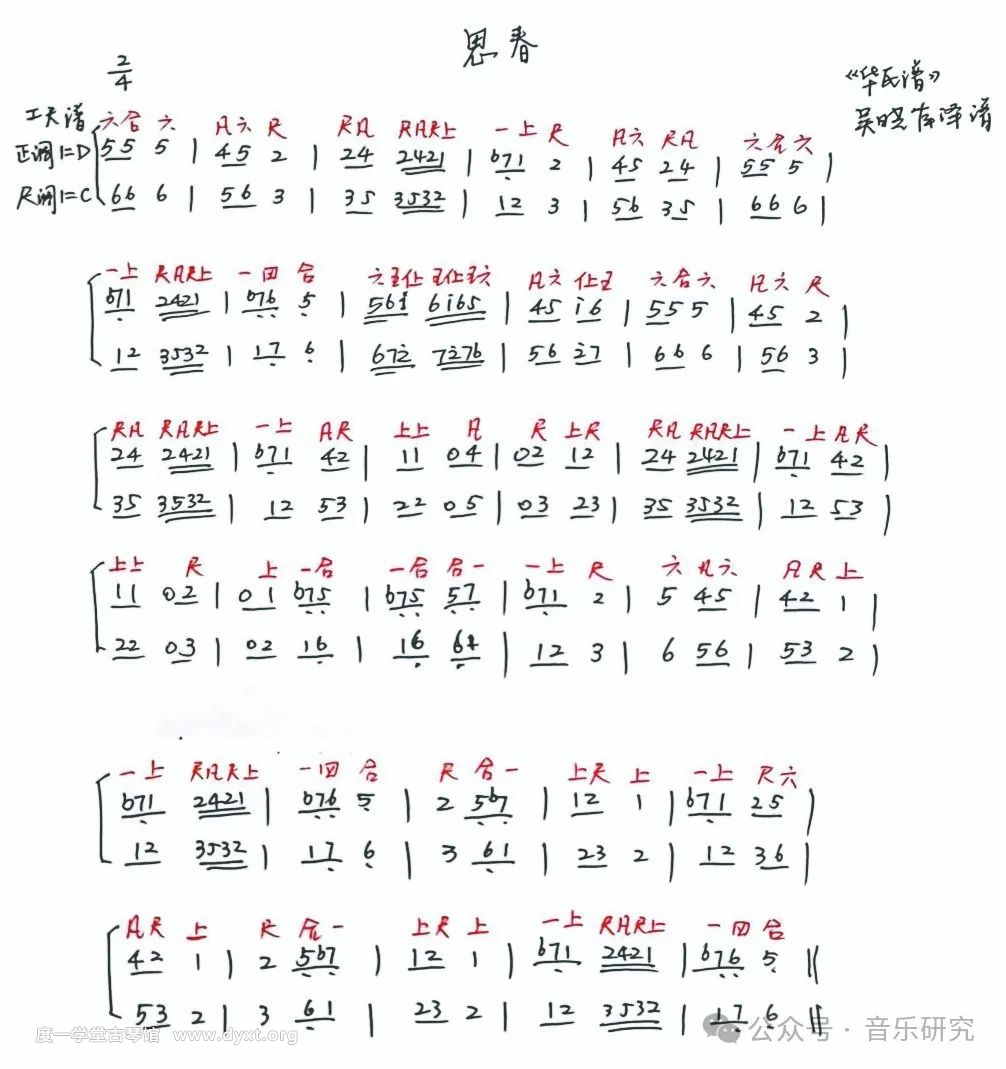 思春
2/4
《华氏谱》
吴晓春译谱
工尺谱 六合 六 凡六 尺 尺凡 尺凡尺上 一上 尺 凡六 尺凡 六合六
正调1=D 55 5 | 45 2 | 24 2421 | b71 2 | 45 24 | 55 5 |
尺调1=C 66 6 | 56 3 | 35 3532 | 12 3 | 56 35 | 66 6 |
一上 尺凡尺上 一四 合 六五仩 五仩五六 凡六 仩五 六合六 凡六 尺
b71 2421 | b76 5 | 561 6165 | 45 16 | 55 5 | 45 2 |
12 3532 | 17 6 | 672 7276 | 56 27 | 66 6 | 56 3 |
尺凡 尺凡尺上 一上 凡尺 上上 凡 尺 上尺 尺凡 尺凡尺上 一上 凡尺
24 2421 | b71 42 | 11 04 | 02 12 | 24 2421 | b71 42 |
35 3532 | 12 53 | 22 05 | 03 23 | 35 3532 | 12 53 |
上上 尺 上 一合 一合 合一 一上 尺 六 凡六 凡尺 上
11 02 | 01 b75 | b75 57 | b71 2 | 5 45 | 42 1 |
22 03 | 02 16 | 16 61 | 12 3 | 6 56 | 53 2 |
一上 尺凡尺上 一四 合 尺 合一 上尺 上 一上 尺六
b71 2421 | b76 5 | 2 5b7 | 12 1 | b71 25 |
12 3532 | 17 6 | 3 61 | 23 2 | 12 36 |
凡尺 上 尺 合一 上尺 上 一上 尺凡尺上 一四 合
42 1 | 2 5b7 | 12 1 | b71 2421 | b76 5 ‖
53 2 | 3 61 | 23 2 | 12 3532 | 17 6 ‖
度一学堂古琴馆 www.dyxt.org
公众号 · 音乐研究